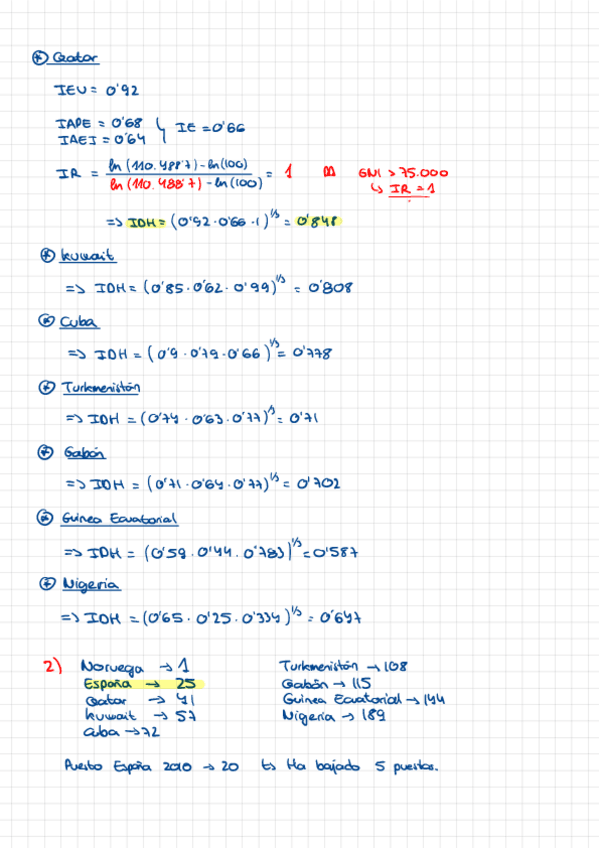 * Qatar
IEV = 0'92
IAPE = 0'68
IAEI = 0'64
IE = 0'66
IR = (ln(110.488'7) - ln(100)) / (ln(110.488'7) - ln(100)) = 1
GNI > 75.000
↳ IR = 1
=> IDH = (0'92 · 0'66 · 1)^1/3 = 0'848
* Kuwait
=> IDH = (0'85 · 0'62 · 0'99)^1/3 = 0'808
* Cuba
=> IDH = (0'9 · 0'79 · 0'66)^1/3 = 0'778
* Turkmenistán
=> IDH = (0'74 · 0'63 · 0'77)^1/3 = 0'71
* Gabón
=> IDH = (0'71 · 0'64 · 0'77)^1/3 = 0'702
* Guinea Ecuatorial
=> IDH = (0'59 · 0'44 · 0'783)^1/3 = 0'587
* Nigeria
=> IDH = (0'65 · 0'25 · 0'334)^1/3 = 0'647
2) Noruega → 1
España → 25
Qatar → 41
Kuwait → 57
Cuba → 72
Turkmenistán → 108
Gabón → 115
Guinea Ecuatorial → 144
Nigeria → 189
Puesto España 2010 → 20 ↳ Ha bajado 5 puestos.